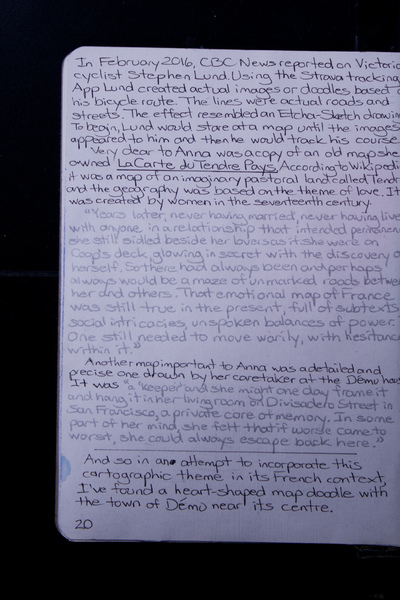 In February 2016, CBC News reported on Victoria
cyclist Stephen Lund. Using the Strava tracking
App Lund created actual images or doodles based
his bicycle route. The lines were actual roads and
streets. The effect resembled an Etcha-Sketch drawin
To begin, Lund would stare at a map until the images
appeared to him and then he would track his course
Very dear to Anna was a copy of an old map she
owned La Carte du Tendre Pays. According to Wikipedi
it was a map of an imaginary pastoral land called Tendr
and the geography was based on the theme of love. It
was created by women in the seventeenth century.
"Years later, never having married, never having live
with anyone in a relationship that intended permanenc
she still sidled beside her lovers as if she were on
Coop's deck, glowing in secret with the discovery o
herself. So there had always been and perhaps
always would be a maze of unmarked roads betwee
her and others. That emotional map of France
was still true in the present, full of subtexts
social intricacies, unspoken balances of power.
One still needed to move warily, with hesitanc
within it."
Another map important to Anna was a detailed and
precise one drawn by her caretaker at the Dému hou
It was "a 'keeper' and she might one day frame it
and hang it in her living room on Divisadero Street in
San Francisco, a private core of memory. In some
part of her mind, she felt that if worse came to
worst, she could always escape back here."
And so in an attempt to incorporate this
cartographic theme in its French context,
I've found a heart-shaped map doodle with
the town of Dému near its centre.
20